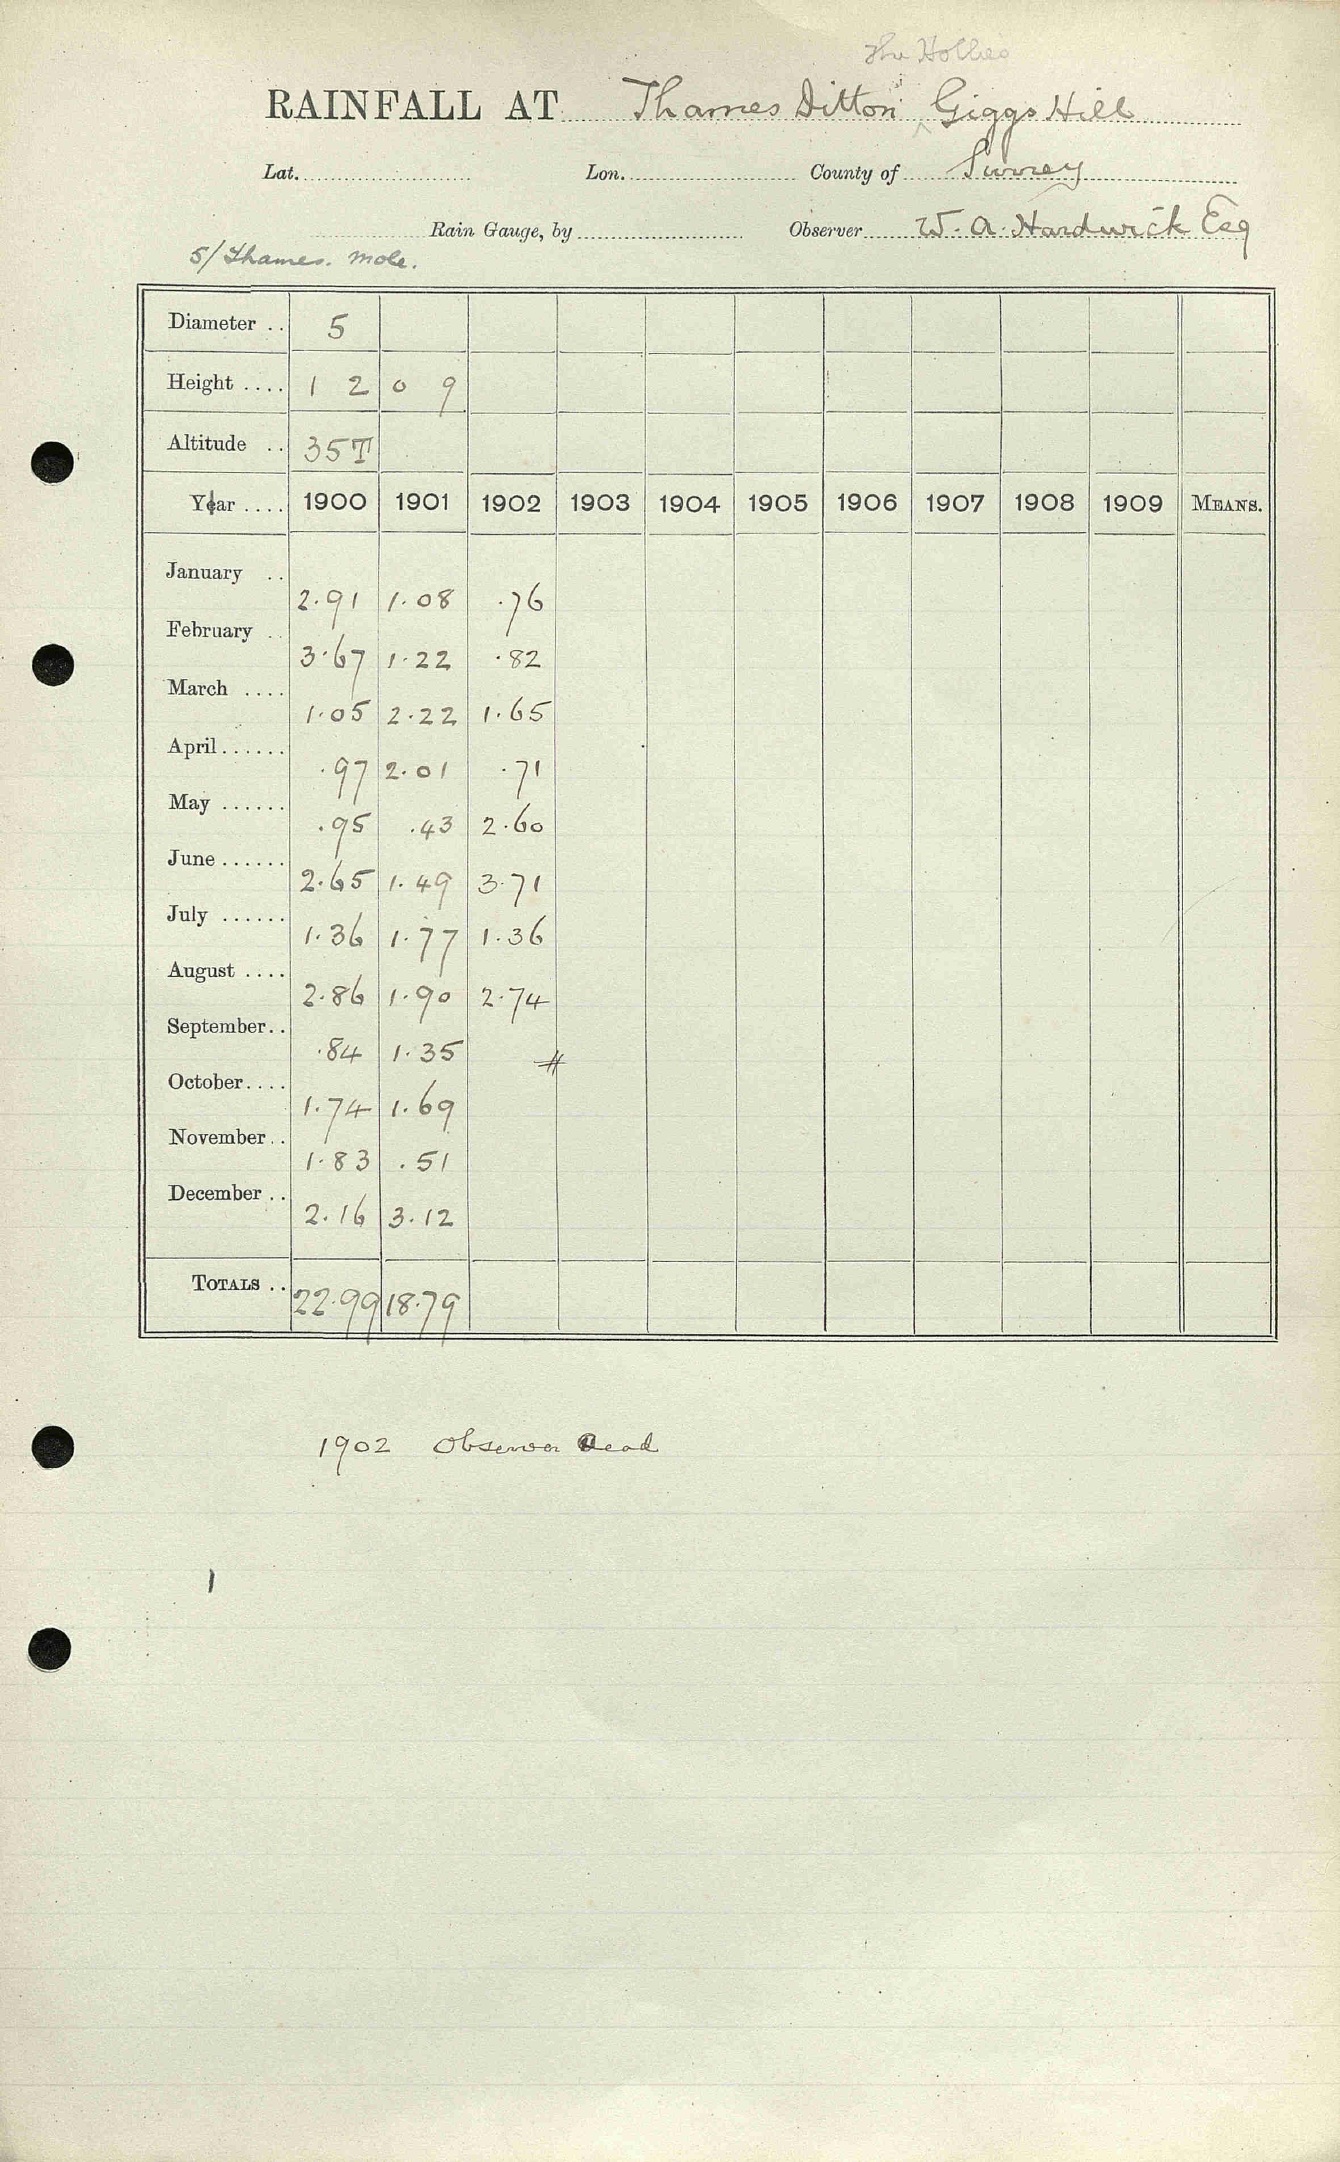 The Hollies
RAINFALL AT Thames Ditton ^ Giggs Hill
Lat. Lon. County of Surrey
Rain Gauge, by Observer W. A. Hardwick Esq
5/ Thames. Mole.
Diameter .. 5
Height .... 1 2 0 9
Altitude .. 35T
Year .... 1900 1901 1902 1903 1904 1905 1906 1907 1908 1909 MEANS.
January .. 2.91 1.08 .76
February .. 3.67 1.22 .82
March .... 1.05 2.22 1.65
April ...... .97 2.01 .71
May ...... .95 .43 2.60
June ...... 2.65 1.49 3.71
July ...... 1.36 1.77 1.36
August .... 2.86 1.90 2.74
September .. .84 1.35
October .... 1.74 1.69
November .. 1.83 .51
December .. 2.16 3.12
TOTALS .. 22.99 18.79
1902 Observer Dead